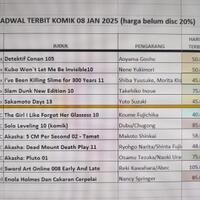 JADWAL TERBIT KOMIK 08 JAN 2025 (harga belum disc 20%)
JUDUL PENGARANG HARGA
Detektif Conan 105 Aoyama Gosho
Kubo Won't Let Me Be Invisible10 Nene Yukimori
I've Been Killing Slime for 300 Years 11 Shiba Yuusuke, Morita Kis
Slam Dunk New Edition 10 Takehiko Inoue
Sakamoto Days 13 Yuto Suzuki
The Girl I Like Forgot Her Glassess 10 Koume Fujichika
Solo Leveling 10 (komik) Dubu/Chugong
Akasha: 5 CM Per Second 02 - Tamat Makoto Shinkai
Akasha: Dead Mount Death Play 11 Ryohgo Narita/Shinta Fuji
Akasha: Pluto 01 Osamu Tezuka/Naoki Uras
Sword Art Online 008 Early And Late Reki Kawahara/Abec
Enola Holmes Dan Cakaran Cerpelai Nancy Springer